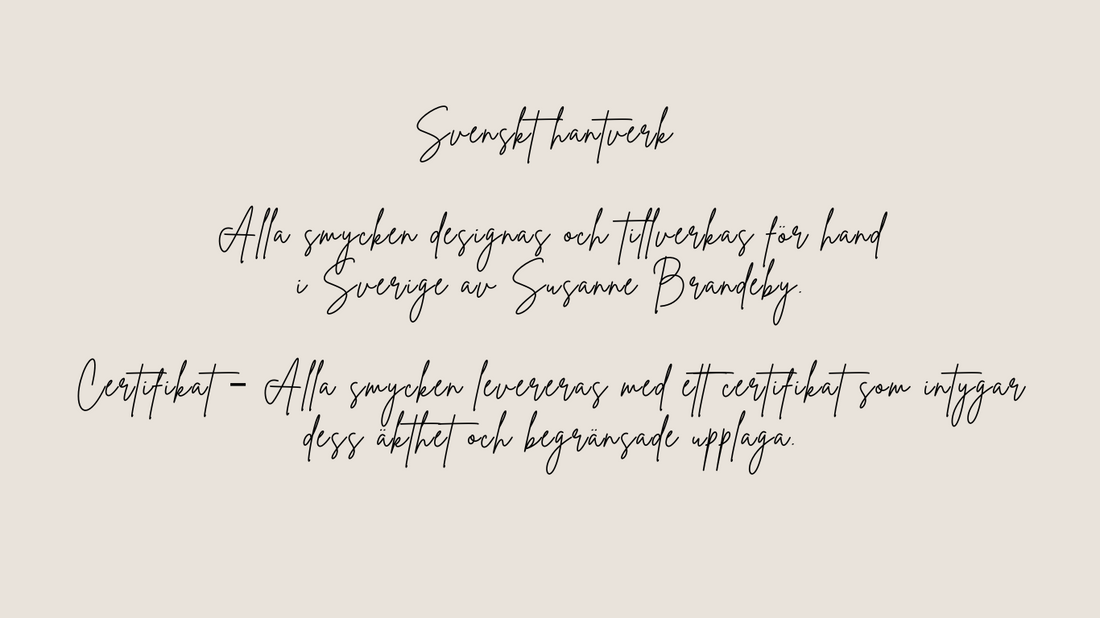 Svenskt hantverk
Alla smycken designas och tillverkas för hand
i Sverige av Susanne Brandeby.
Certifikat - Alla smycken levereras med ett certifikat som intygar
dess äkthet och begränsade upplaga.